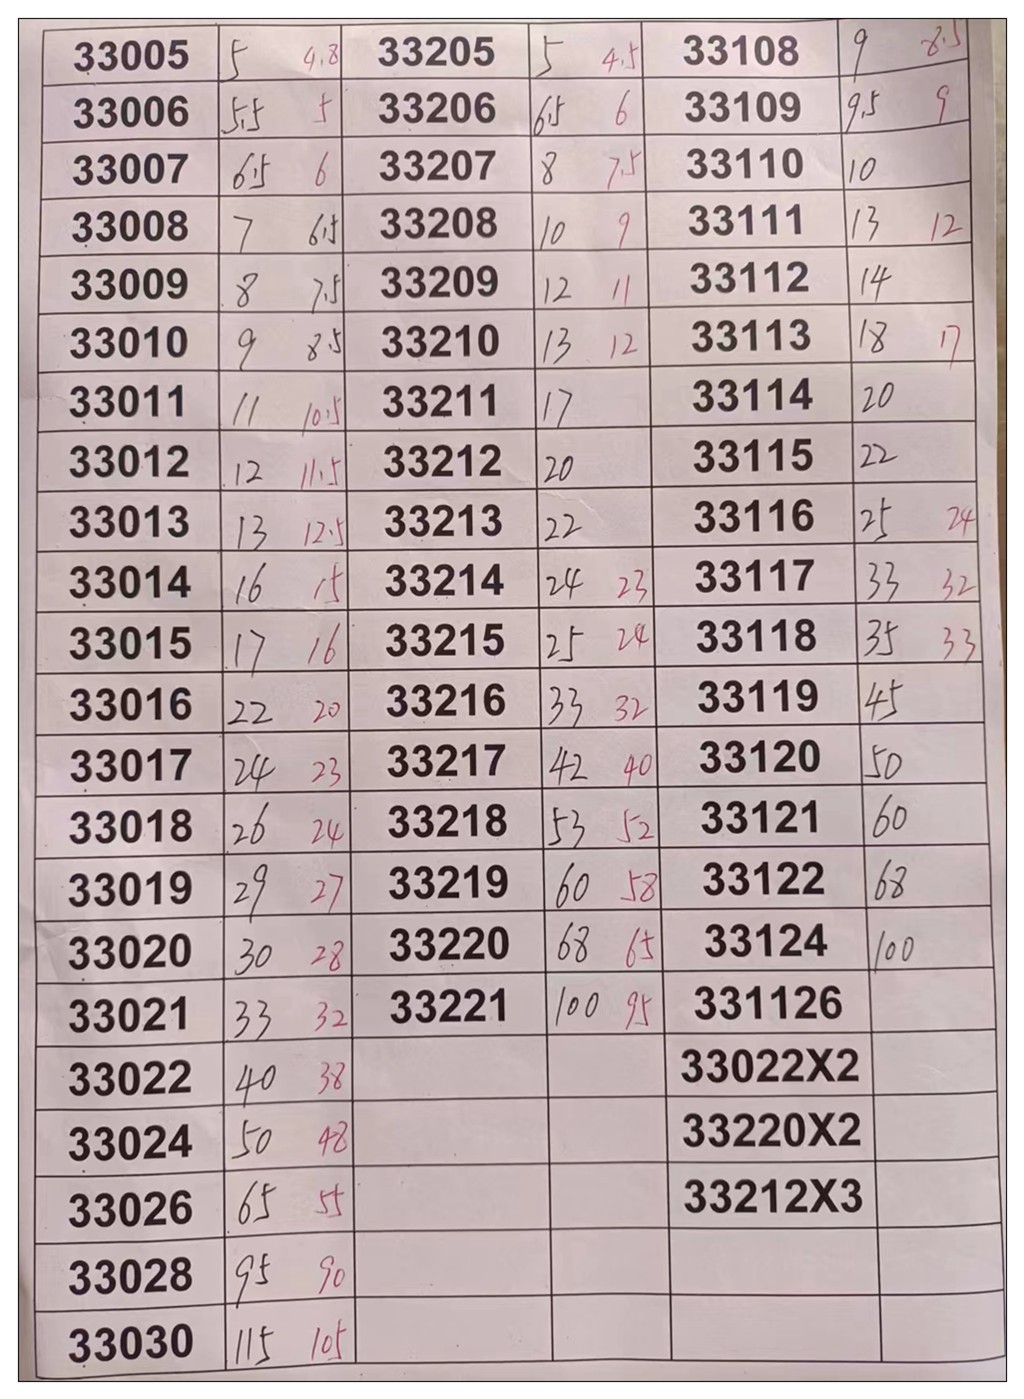 33005 5 4.8 33205 5 4.5 33108 9 8.5
33006 5.5 5 33206 6.5 6 33109 9.5 9
33007 6.5 6 33207 8 7.5 33110 10
33008 7 6.5 33208 10 9 33111 13 12
33009 8 7.5 33209 12 11 33112 14
33010 9 8.5 33210 13 12 33113 18 17
33011 11 10.5 33211 17 33114 20
33012 12 11.5 33212 20 33115 22
33013 13 12.5 33213 22 33116 25 24
33014 16 15 33214 24 23 33117 33 32
33015 17 16 33215 25 24 33118 35 33
33016 22 20 33216 33 32 33119 45
33017 24 23 33217 42 40 33120 50
33018 26 24 33218 53 52 33121 60
33019 29 27 33219 60 58 33122 68
33020 30 28 33220 68 65 33124 100
33021 33 32 33221 100 95 331126
33022 40 38 33022X2
33024 50 48 33220X2
33026 65 55 33212X3
33028 95 90
33030 115 105